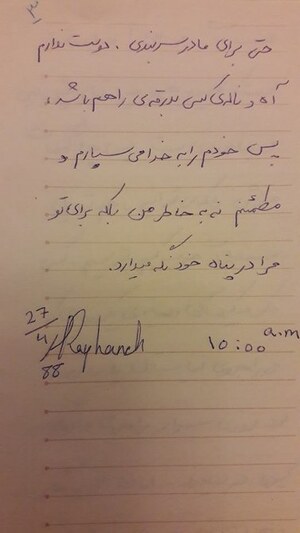 ۳
حتی برای مادر سربندی. دوست ندارم
آه و ناله‌ی کسی بدرقه‌ی راهم باشد،
پس خودم را به خدا می‌سپارم و
مطمئنم نه به خاطر من بلکه برای تو
مرا در پناه خود نگه میدارد.
27/4/88 Rayhaneh 10:00 a.m